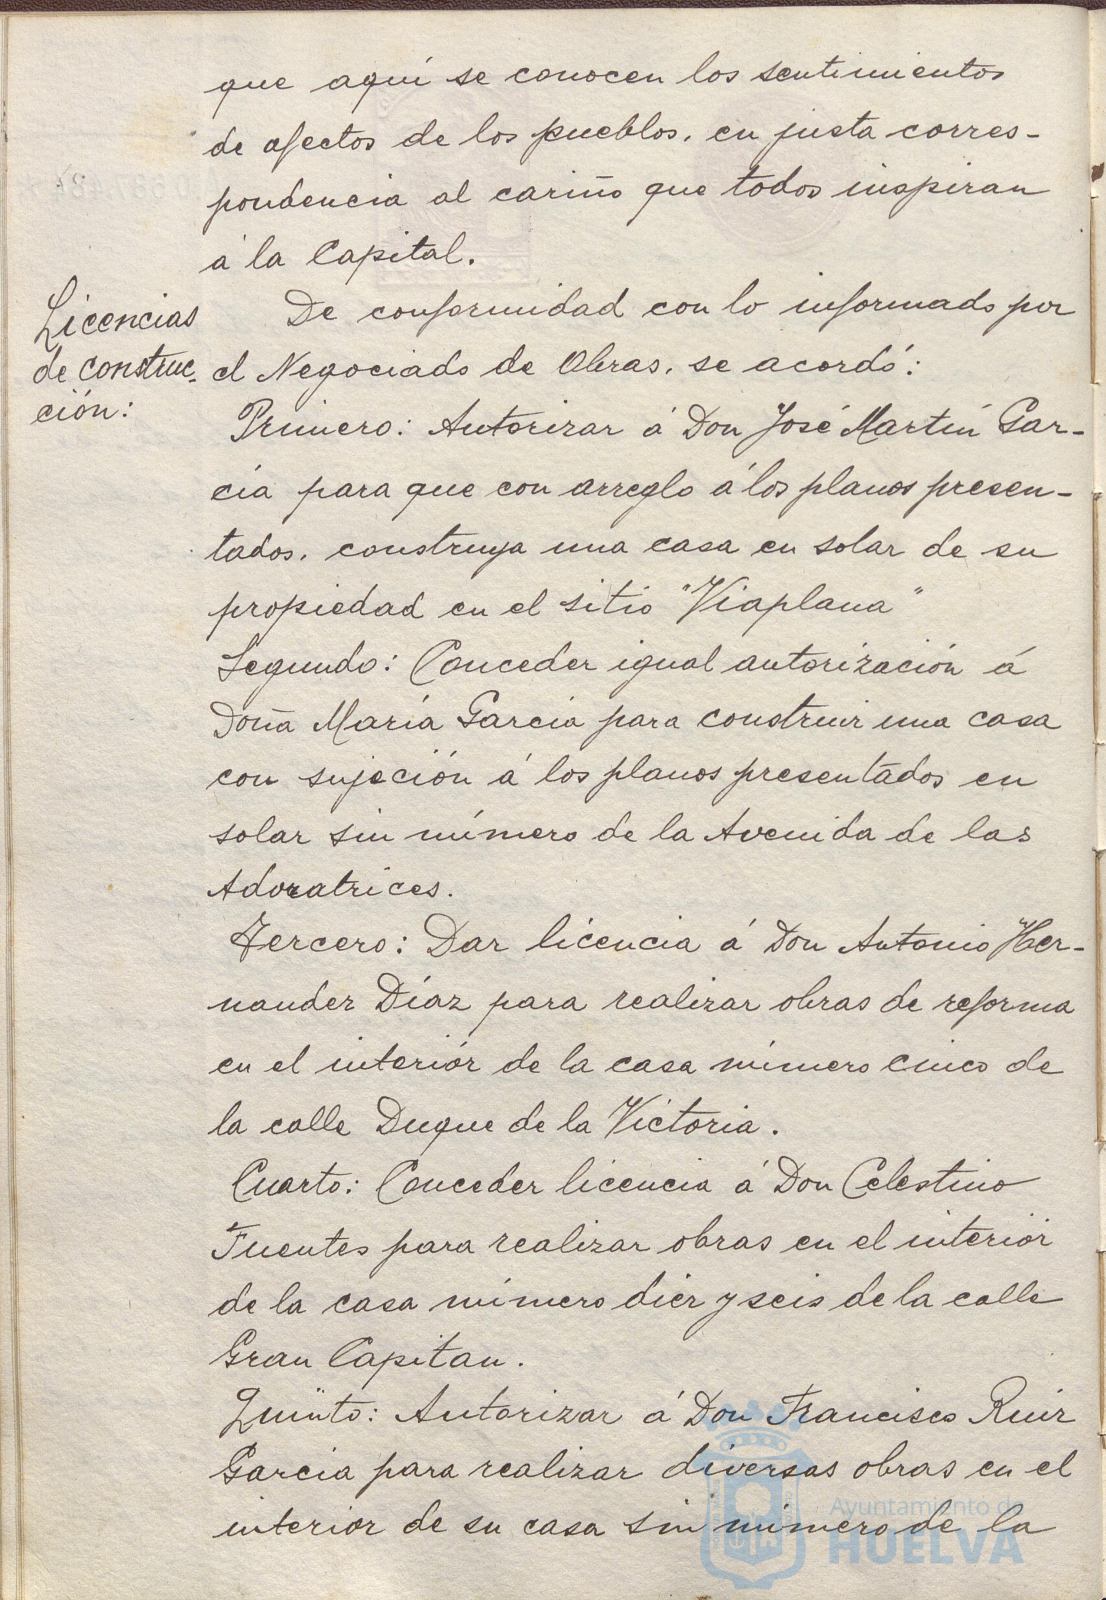 que aquí se conocen los sentimientos
de afectos de los pueblos, en justa corres-
pondencia al cariño que todos inspiran
á la Capital.
Licencias
de construc-
ción:
De conformidad con lo informado por
el Negociado de Obras, se acordó:
Primero: Autorizar á Don José Martín Gar-
cía para que con arreglo á los planos presen-
tados, construya una casa en solar de su
propiedad en el sitio "Viaplana"
Segundo: Conceder igual autorización á
Doña María García para construir una casa
con sujeción á los planos presentados en
solar sin número de la Avenida de las
Adoratrices.
Tercero: Dar licencia á Don Antonio Her-
nander Díaz para realizar obras de reforma
en el interiór de la casa número cinco de
la calle Duque de la Victoria.
Cuarto: Conceder licencia á Don Celestino
Fuentes para realizar obras en el interiór
de la casa número dier y seis de la calle
Gran Capitan.
Quinto: Autorizar á Don Francisco Ruir
García para realizar diversas obras en el
interior de su casa sin número de la
Ayuntamiento de
HUELVA